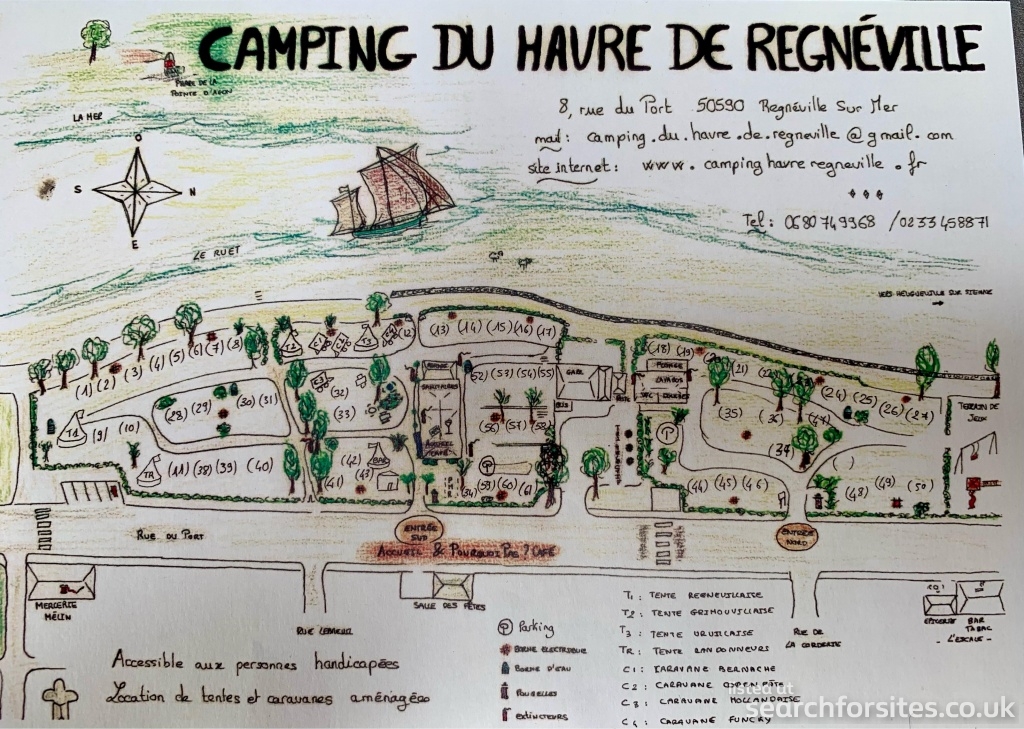 CAMPING DU HAVRE DE REGNÉVILLE
8, rue du Port 50590 Regnéville Sur Mer
mail: camping.du.havre.de.regneville@gmail.com
site internet: www.campinghavreregneville.fr
Tel: 0680749968 /0233458871
PHARE DE LA
POINTE D'AGON
LA MER
O
S N
E
LE RUET
VERS HEUGUEVILLE SUR SIENNE
(1) (2) (3) (4) (5) (6) (7) (8)
T2 T3 (12)
(13) (14) (15) (16) (17)
(18) (19) (21) (24) (25) (26) (27)
T1 (9) (10)
(28) (29) (30) (31)
(32)
(33)
SANITAIRES
(52) (53) (54) (55)
(56) (57) (58)
(59) (60) (61)
GABL
POTAGE
(35) (36) (47)
(34)
TERRAIN DE
JEUX
TR (11) (38) (39) (40)
(41) (42) (43)
ACCUEIL
CAFÉ
(44) (45) (46)
( )
(48) (49) (50)
RUE DU PORT
ENTRÉE
SUD
ENTRÉE
NORD
ACCUEIL & POURQUOI PAS ? CAFÉ
MERCERIE
MÉLIN
RUE LEMEUIL
SALLE DES FÊTES
RUE DE
LA CORDERIE
EPICERIE
BAR
TABAC
- L'ESCALE -
P Parking
BORNE ELECTRIQUE
BORNE D'EAU
POUBELLES
EXTINCTEURS
T1 : TENTE REGNEVILLAISE
T2 : TENTE GRIMOUVILLAISE
T3 : TENTE URVILLAISE
TR : TENTE RANDONNEURS
C1 : CARAVANE BERNACHE
C2 : CARAVANE
C3 : CARAVANE HOLLANDAISE
C4 : CARAVANE FUNCKY
Accessible aux personnes handicapées
Location de tentes et caravanes aménagées
listed at
searchforsites.co.uk